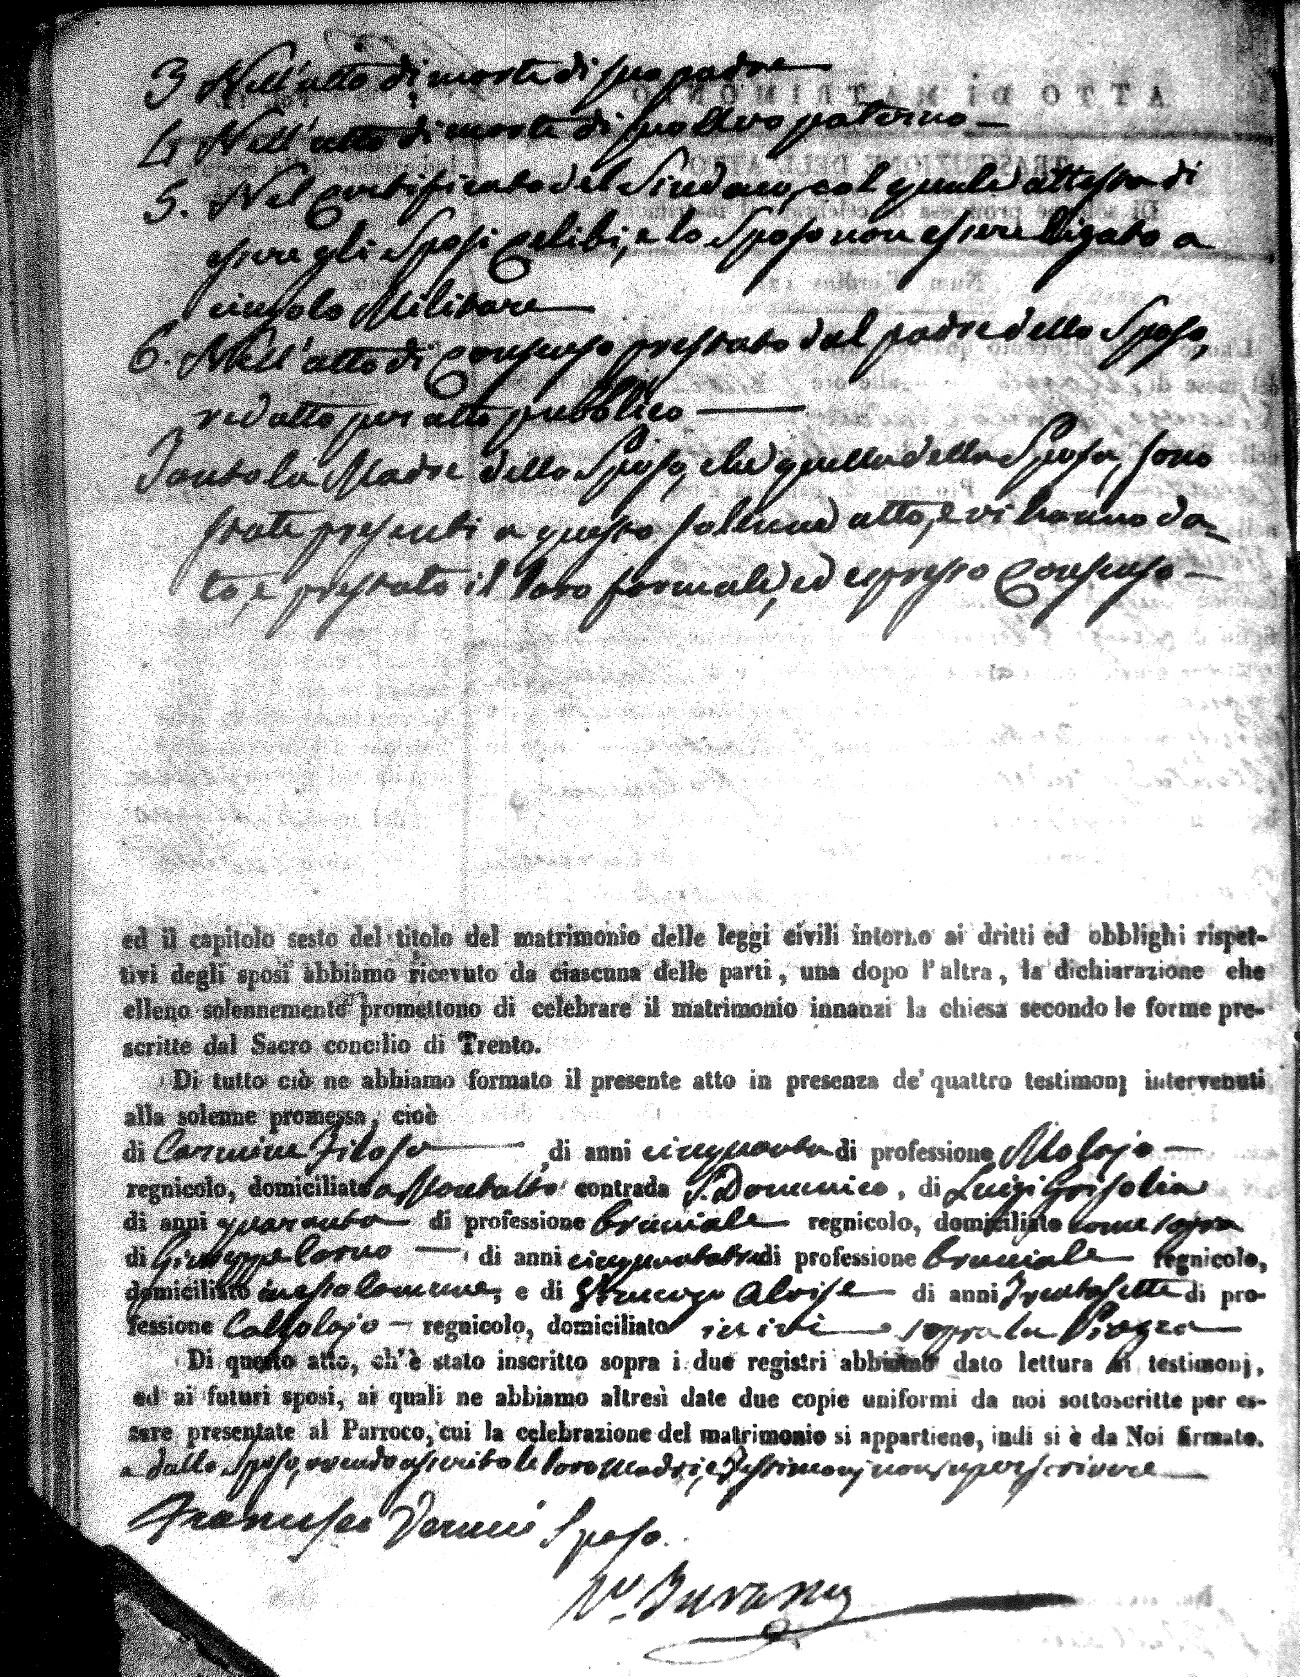 3 Nell'atto di morte di suo padre
4 Nell'atto di morte di suo Avo paterno
5. Nel Certificato del Sindaco, col quale attesta di
essere gli Sposi Celibi, e lo Sposo non essere ligato a
cingolo Militare
6. Nell'atto di Consenso prestato dal padre dello Sposo,
redatto per atto pubblico
Tanto la Madre dello Sposo, che quella della Sposa, sono
state presenti a questo solenne atto, e vi hanno da-
to, e prestato il loro formale, ed espresso Consenso
ed il capitolo sesto del titolo del matrimonio delle leggi civili intorno ai dritti ed obblighi rispet-
tivi degli sposi abbiamo ricevuto da ciascuna delle parti, una dopo l'altra, la dichiarazione che
elleno solennemente promettono di celebrare il matrimonio innanzi la chiesa secondo le forme pre-
scritte dal Sacro concilio di Trento.
Di tutto ciò ne abbiamo formato il presente atto in presenza de' quattro testimonj intervenuti
alla solenne promessa, cioè
di Carmine Filoso , di anni cinquanta di professione
regnicolo, domiciliato a Montalto contrada S. Domenico, di Luigi Grisolia
di anni quaranta di professione bracciale regnicolo, domiciliato come sopra
di Giuseppe , di anni di professione bracciale regnicolo,
domiciliato in esta Comune, e di Aloise di anni Trentasette di pro-
fessione Calzolajo regnicolo, domiciliato ivi sopra la Piazza
Di questo atto, ch'è stato inscritto sopra i due registri abbiamo dato lettura ai testimonj,
ed ai futuri sposi, ai quali ne abbiamo altresì date due copie uniformi da noi sottoscritte per es-
sere presentate al Parroco, cui la celebrazione del matrimonio si appartiene, indi si è da Noi firmato.
e dallo Sposo, avendo asserito le loro Madri, e Testimonj non saper scrivere
Francesco Sposo.